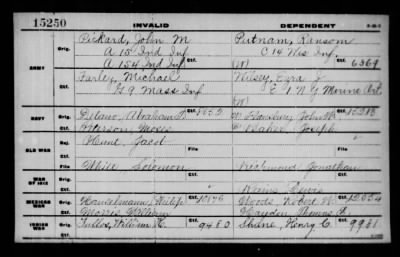 15250 INVALID DEPENDENT
ARMY Orig. Pickard, John M Putnam, Ransom
A 15 Ind Inf C 14 Wis Inf
Ctf. A 154 Ind Inf Ctf. 6369
Orig. Farley, Michael Kelsey, Ezra J
Ctf. G 9 Mass Inf E 1 N Y Marine Art
NAVY Orig. Delano, Abraham Ctf. John Ctf.
Orig. Peterson, Moses Baker, Joseph
OLD WAR Rej. Hunt, Jacob
File File
WAR OF 1812 White Solomon Richmond Jonathan
Lewis
MEXICAN WAR Orig. Hanselmann, Philip Ctf. 10176 Woods, Robert W. Ctf. 12054
Morris, William Haydon Thomas F.
INDIAN WAR Orig. Tullos, William H. Ctf. 9480 Henry C. Ctf. 9931